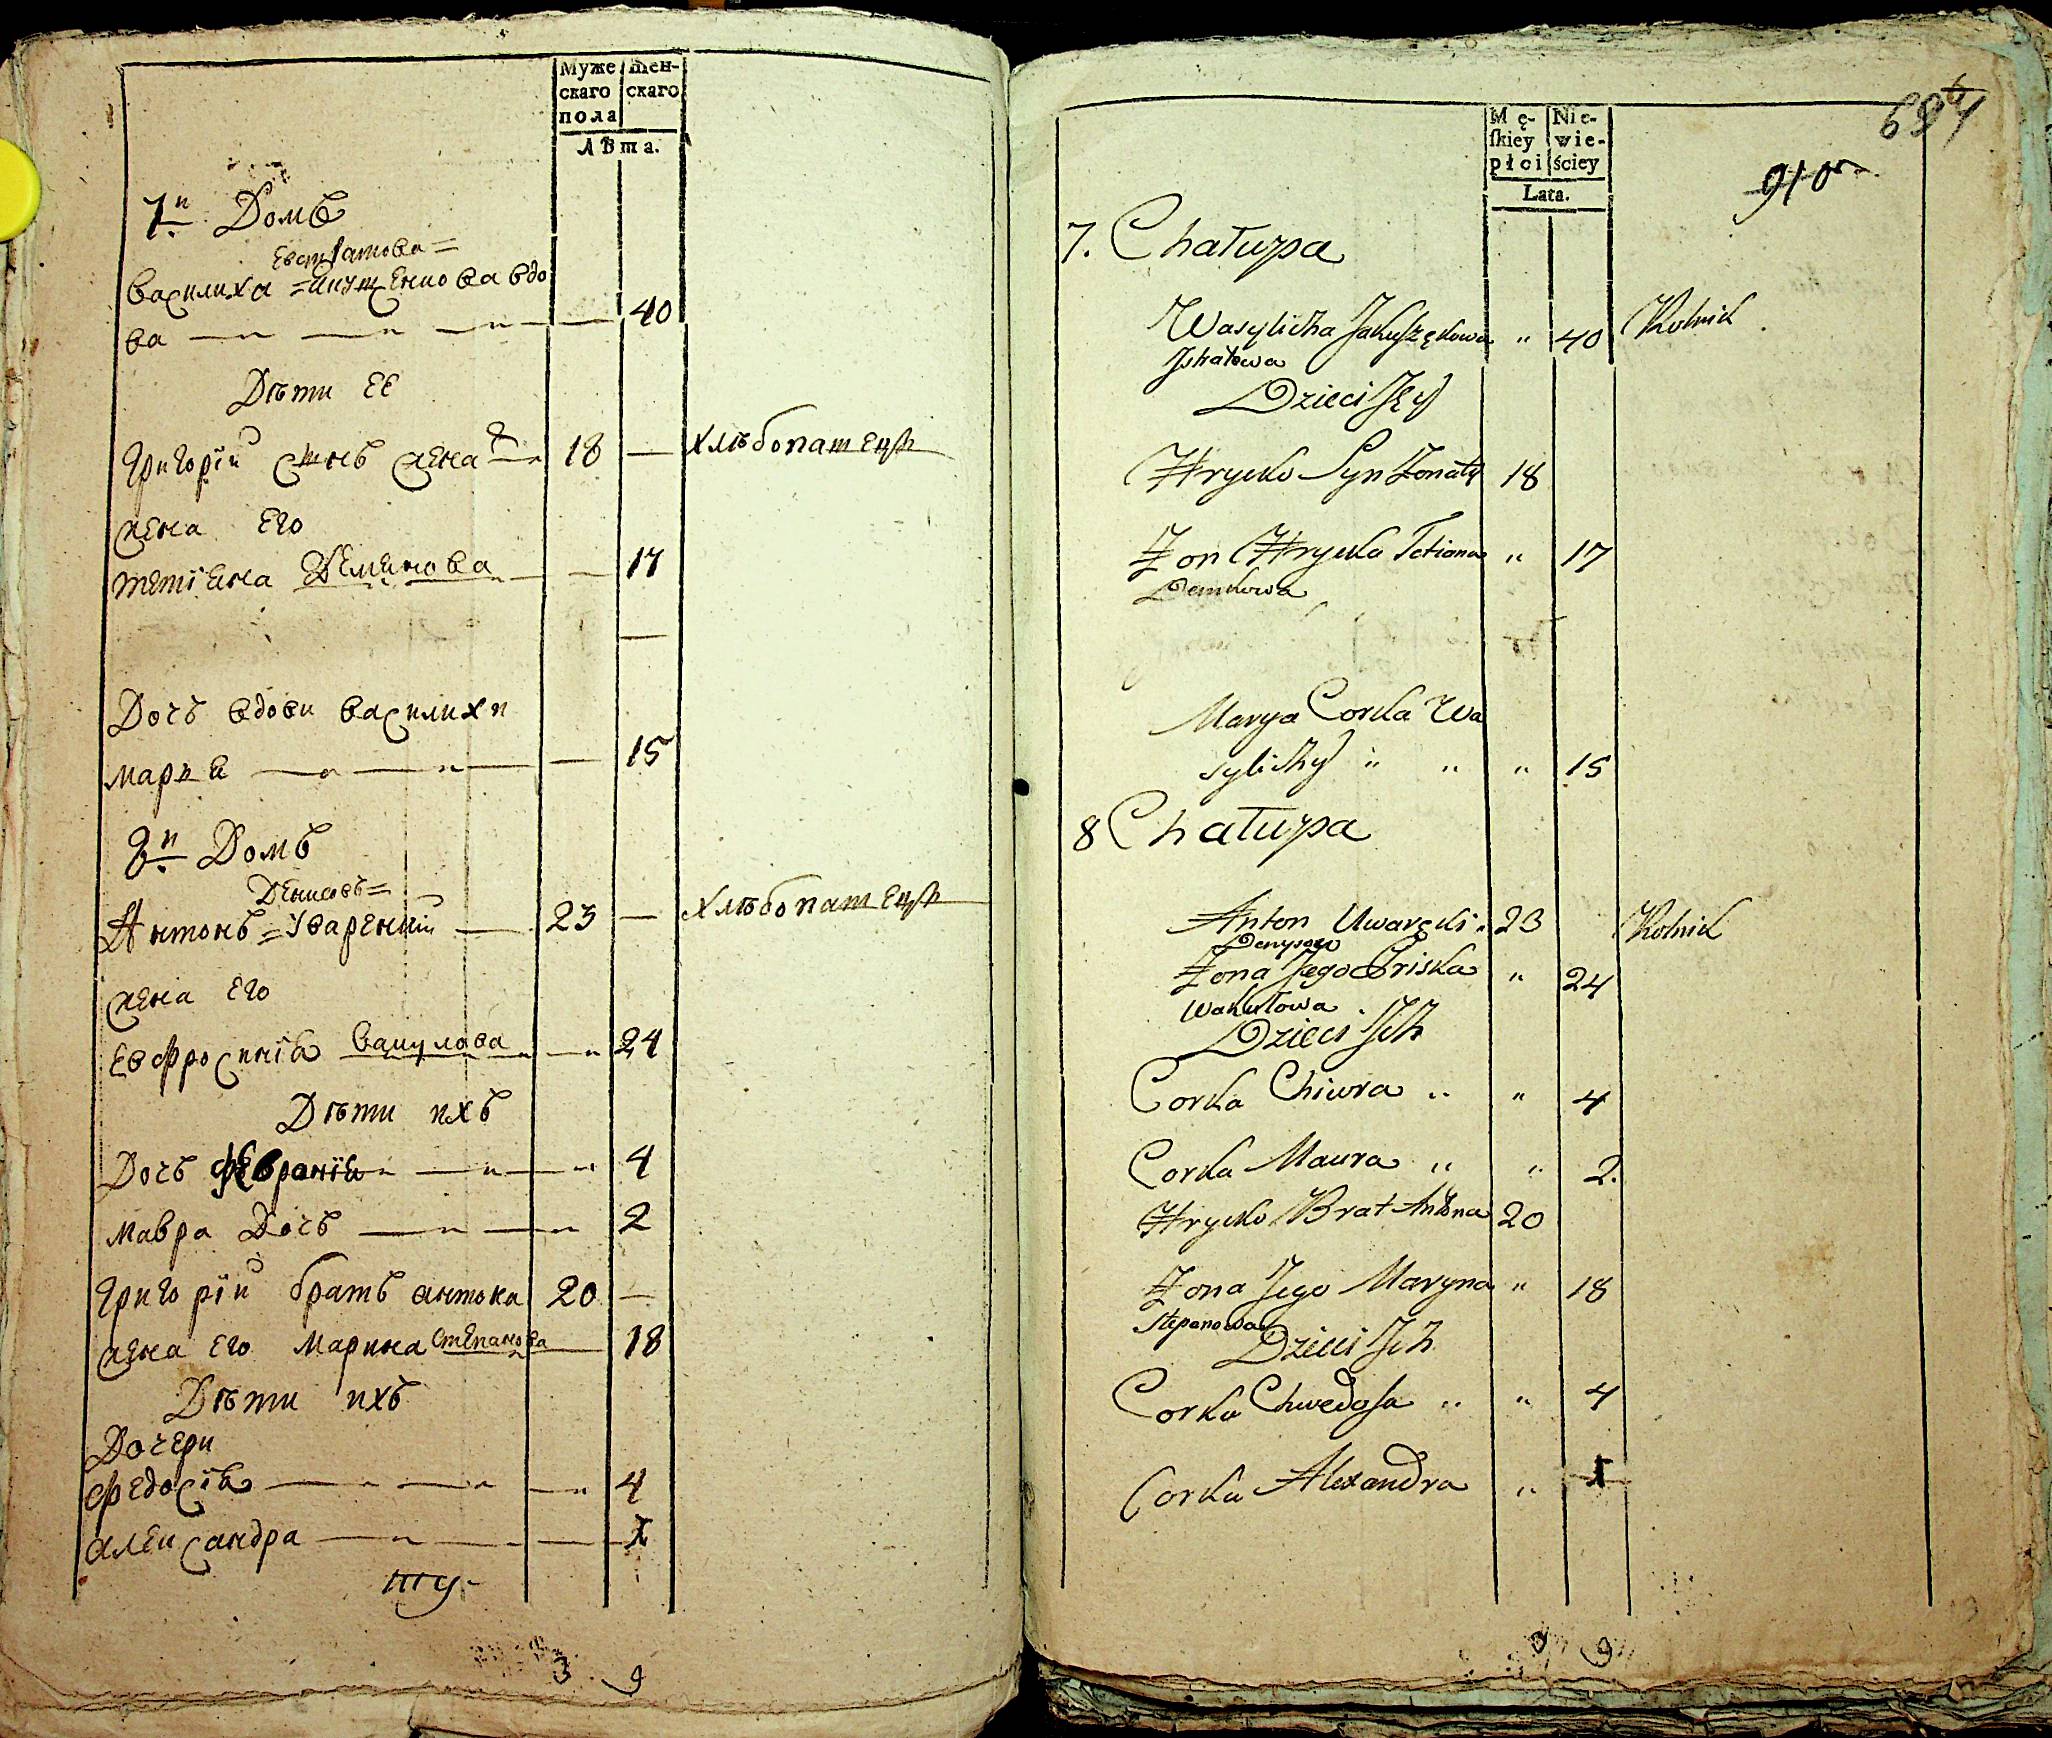 Муже
скаго
пола
жен-
скаго
Лѣта.
7й. Домъ
Евстратова=
Василиха =Якущенкова вдо
ва 40
Дѣти ее
Григорій сынъ жена 18 — хлѣбопашецъ
жена его
Тетіяна Деменкова 17
Дочь вдови Василихи
Марія 15
8й. Домъ
Денисовъ=
Антонъ=Уваренкій 23 — хлѣбопашецъ
жена его
Евфросинія Вакулова 24
Дѣти ихъ
Дочь Февронія 4
Мавра Дочь 2
Григорій братъ антона 20 —
жена его Марина Степанова 18
Дѣти ихъ
Дочери
Федосія 4
александра 1
3 9
Mę-
ſkiey
płci
Nie-
wie-
ściey
Lata.
910
7. Chałupa
Wasylicha Jakuszękowa " 40 Rolnik
Jstratowa
Dzieci Jęy
Hrycko Syn Żonaty 18
Żon Hrycka Tetiana " 17
Demkowa
Marya Corka Wa
sylichy " " " 15
8 Chałupa
Anton Uwaręcki " 23 Rolnik
Denysow
Żona Jego Priska " 24
Wakułowa
Dzieci Jch
Corka Chiwra " " 4
Corka Maura " " 2.
Hrycko Brat Antona 20
Żona Jego Maryna " 18
Stepanowa
Dzieci Jch
Corka Chwedoſa " " 4
Corka Alexandra " 1
3 9